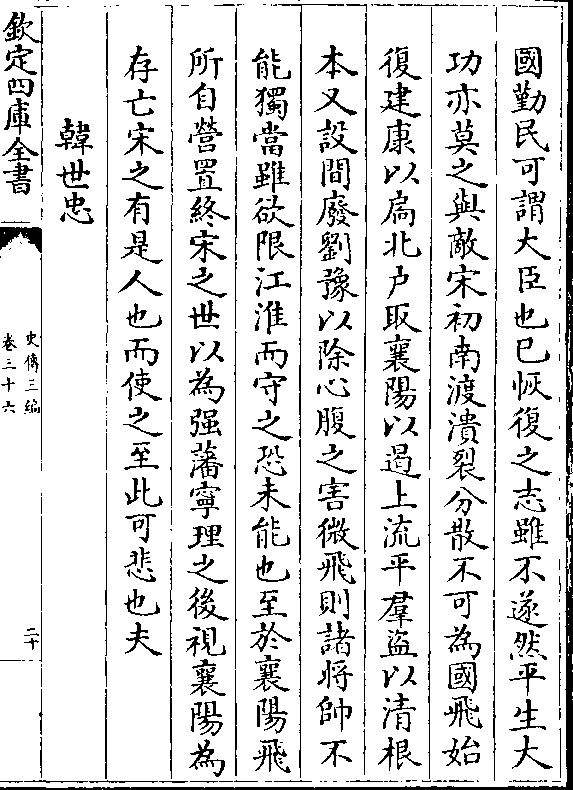 國勤民可謂大臣也已恢復之志雖不遂然平生大
功亦莫之與敵宋初南渡潰裂分散不可為國飛始
復建康以扄北户取襄陽以遏上流平羣盜以清根
本又設間廢劉豫以除心腹之害微飛則諸將帥不
能獨當雖欲限江淮而守之恐未能也至於襄陽飛
所自營置終宋之世以為强藩寧理之後視襄陽為
存亡宋之有是人也而使之至此可悲也夫
韓世忠
欽定四庫全書
史傳三編
卷三十六
二十